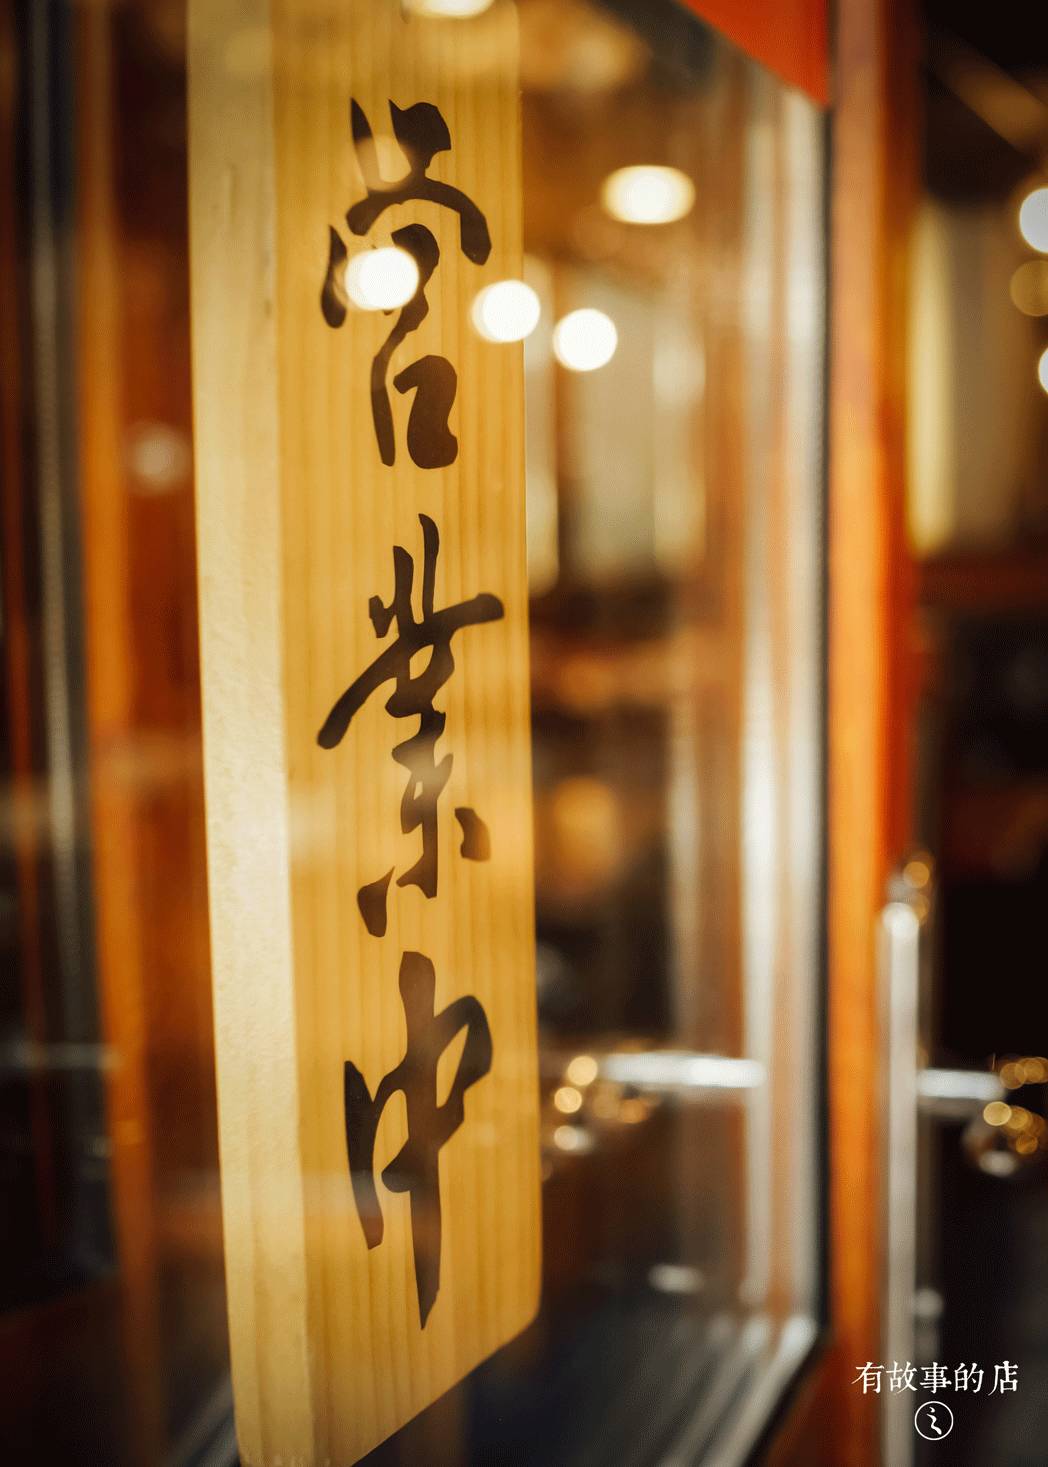 営業中
有故事的店
之